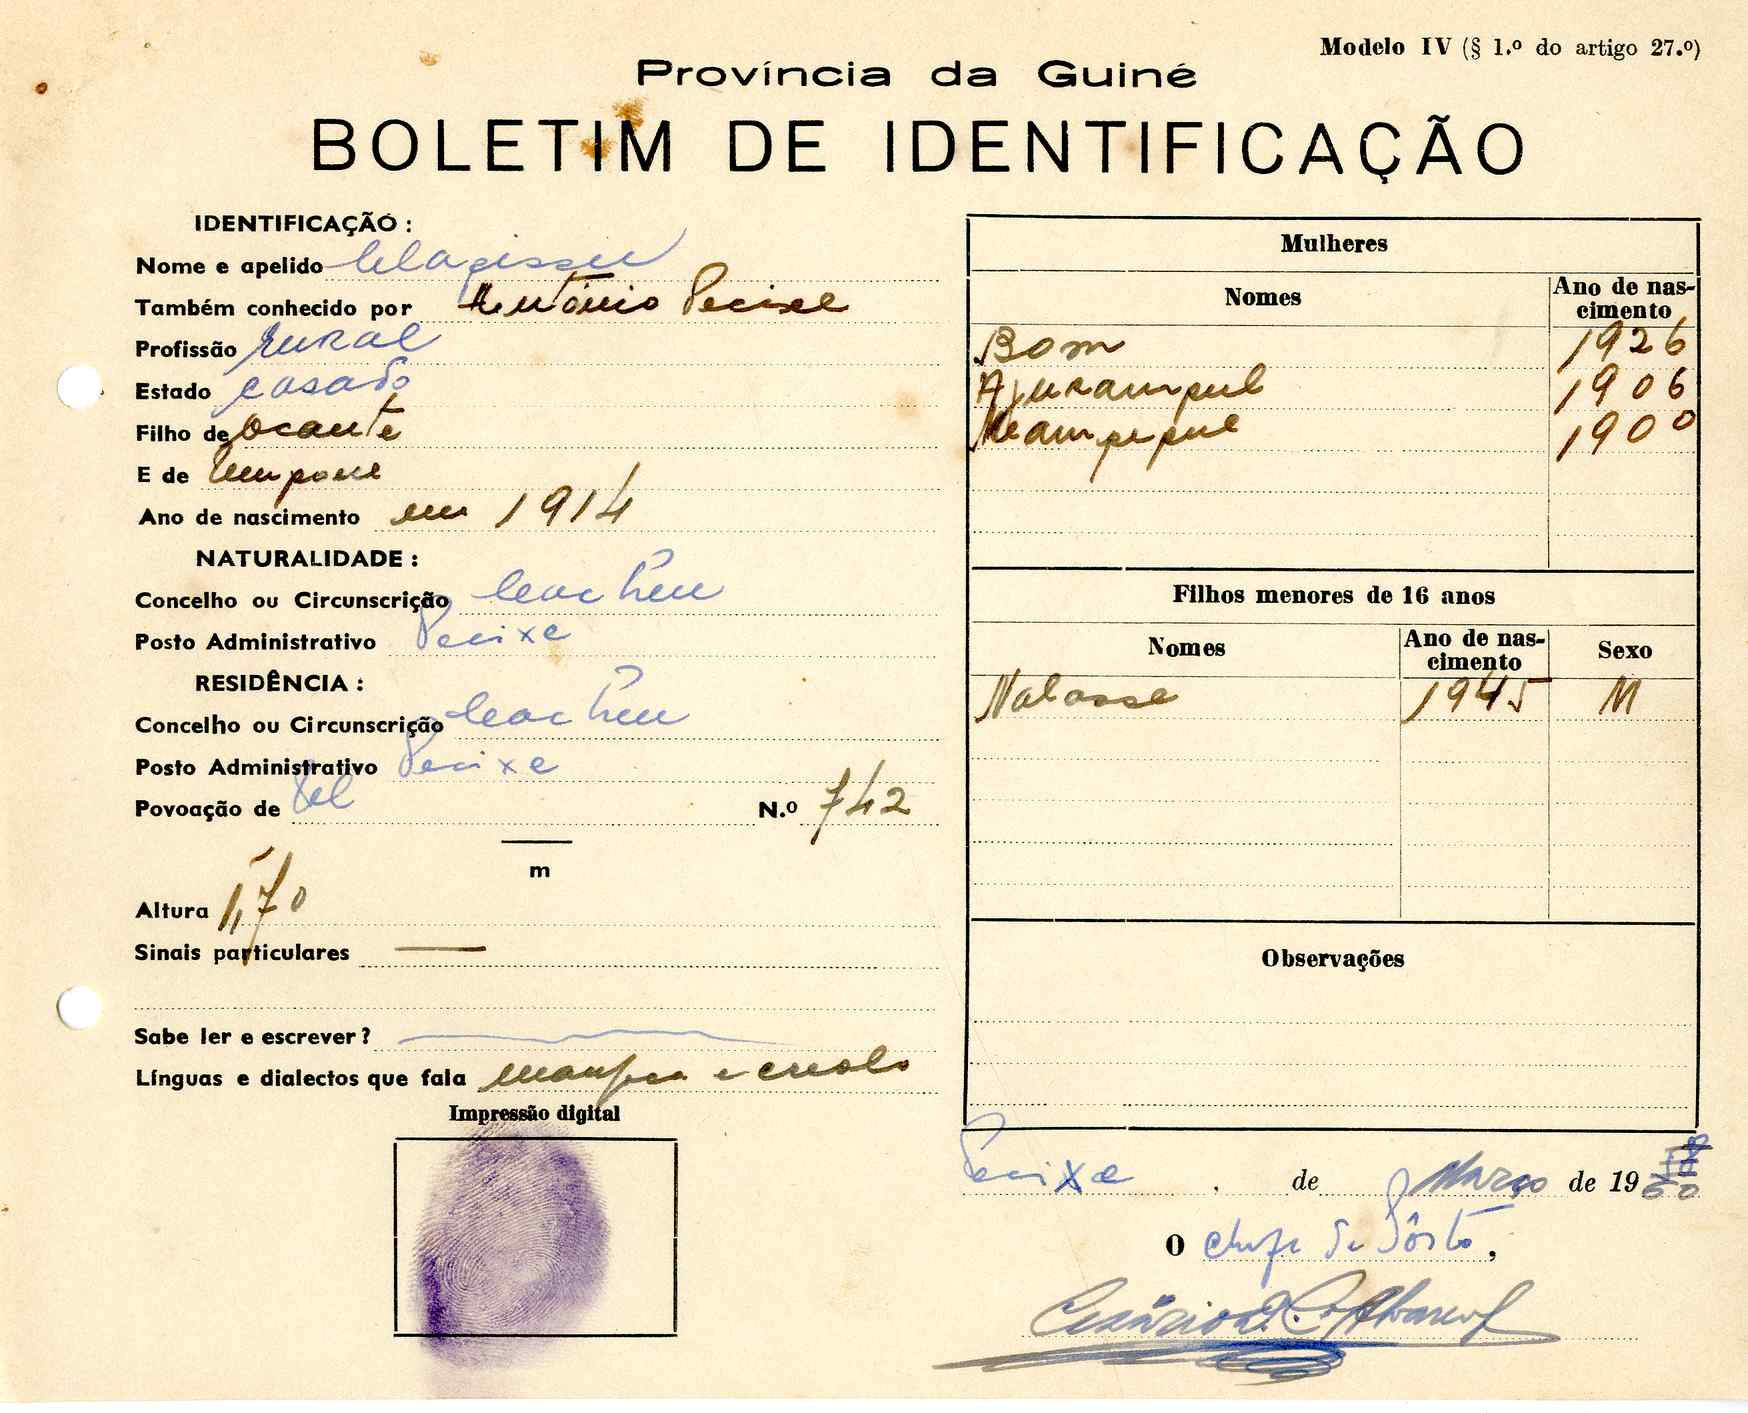 Modelo IV (§ 1.º do artigo 27.º)
Província da Guiné
BOLETIM DE IDENTIFICAÇÃO
IDENTIFICAÇÃO :
Nome e apelido
Também conhecido por António Pecixe
Profissão rural
Estado casado
Filho de Ocante
E de
Ano de nascimento em 1914
NATURALIDADE :
Concelho ou Circunscrição Cacheu
Posto Administrativo Pecixe
RESIDÊNCIA :
Concelho ou Circunscrição Cacheu
Posto Administrativo Pecixe
Povoação de N.º 742
m
Altura 1,70
Sinais particulares —
Sabe ler e escrever?
Línguas e dialectos que fala e creolo
Impressão digital
Mulheres
Nomes Ano de nas-
cimento
Bom 1926
1906
1900
Filhos menores de 16 anos
Nomes Ano de nas-
cimento Sexo
Nabasse 1945 M
Observações
Pecixe , de Março de 19
O chefe de Pôsto,